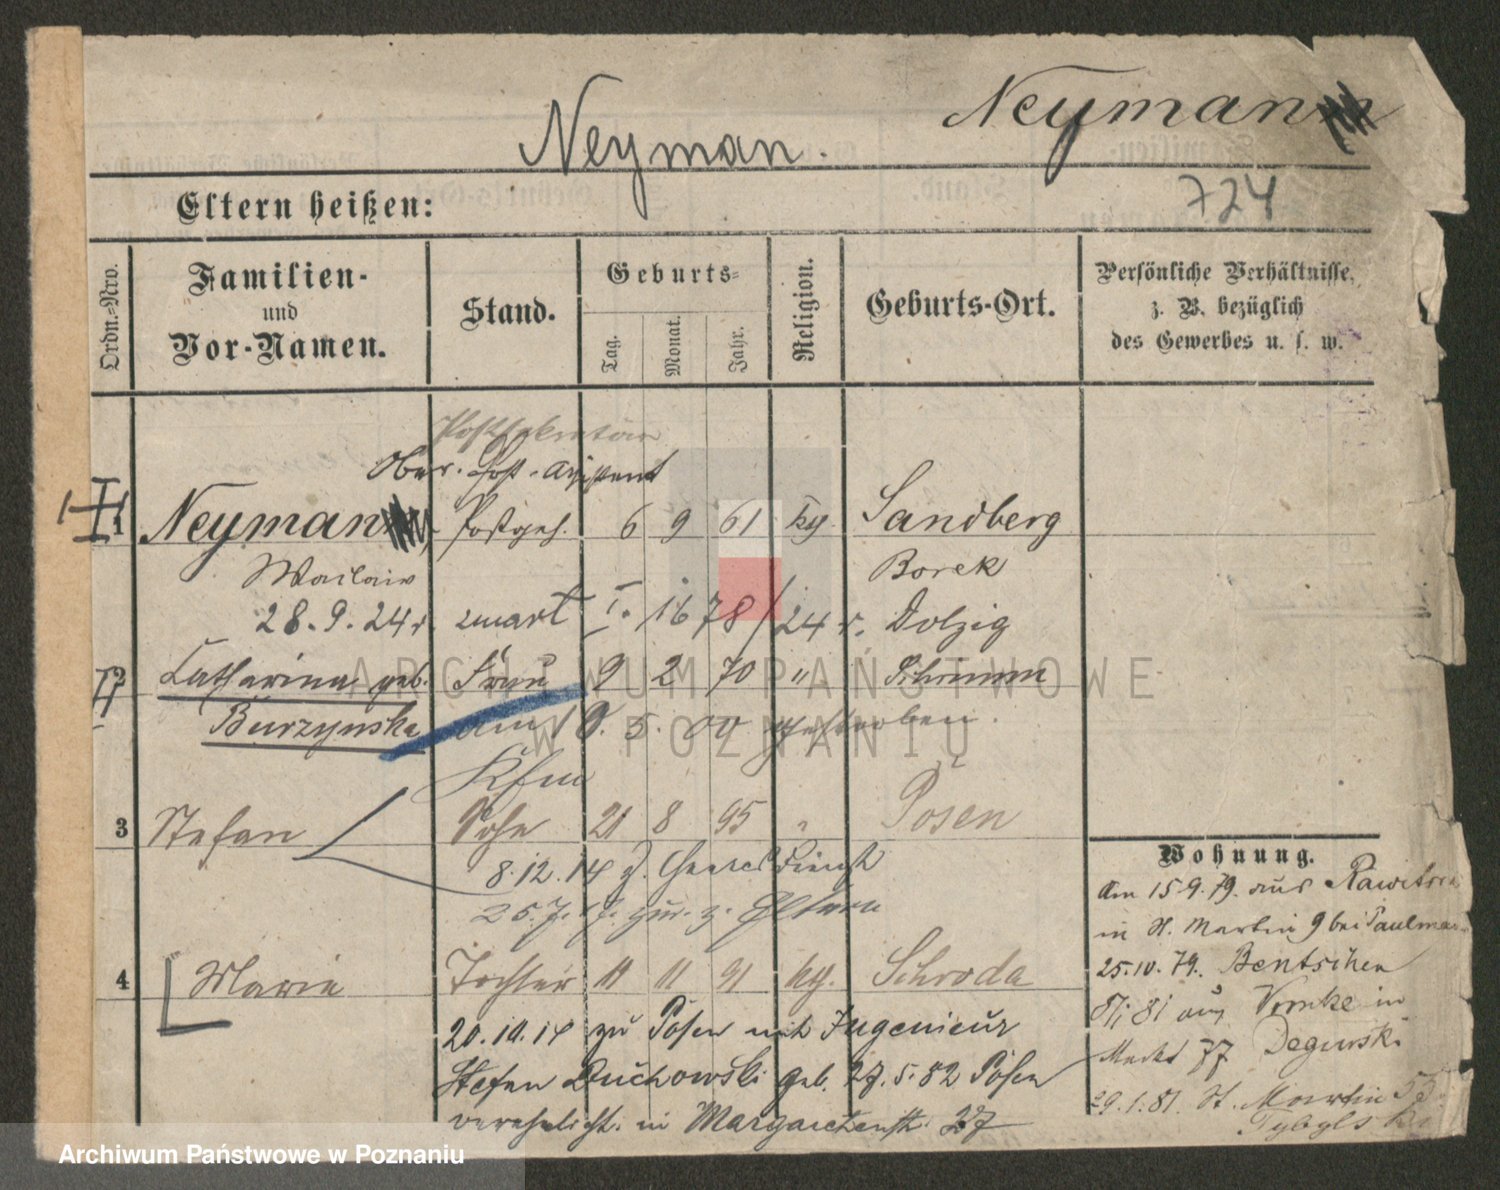 Neyman
Neyman.
724
Eltern heißen:
Ordn.-Nro.
Familien-
und
Vor-Namen.
Stand.
Geburts-
Tag.
Monat.
Jahr.
Religion.
Geburts-Ort.
Persönliche Verhältnisse,
z. B. bezüglich
des Gewerbes u. s. w.
Postsekretär
Ober-Post-Assistent
1 Neyman Postgeh. 6 9 61 kg. Sandberg
Borek
28.9.24 r. zmarł I. 16 78/24 r. Dolzig
2 Catharina geb. Frau 9 2 70 " Schrimm
Burzynska am 19. 5. 00 gestorben.
Kfm
3 Stefan Sohn 21 8 95 " Posen
8.12.14 z. Heeresdienst
25.7. zur. z. Eltern
4 Marie Tochter 11 11 91 kg. Schroda
20.10.14 zu Posen mit Ingenieur
Stefan Duchowski geb. 27.5.82 Posen
verehelicht. in Margarethenstr. 27
Wohnung.
Am 15.9.79. aus Rawitsch
in St. Martin 9 bei
25.10.79. Bentschen
81 aus in
Markt 77 Degurski
29.1.81. St. Martin 53
ARCHIWUM PAŃSTWOWE
W POZNANIU
Archiwum Państwowe w Poznaniu